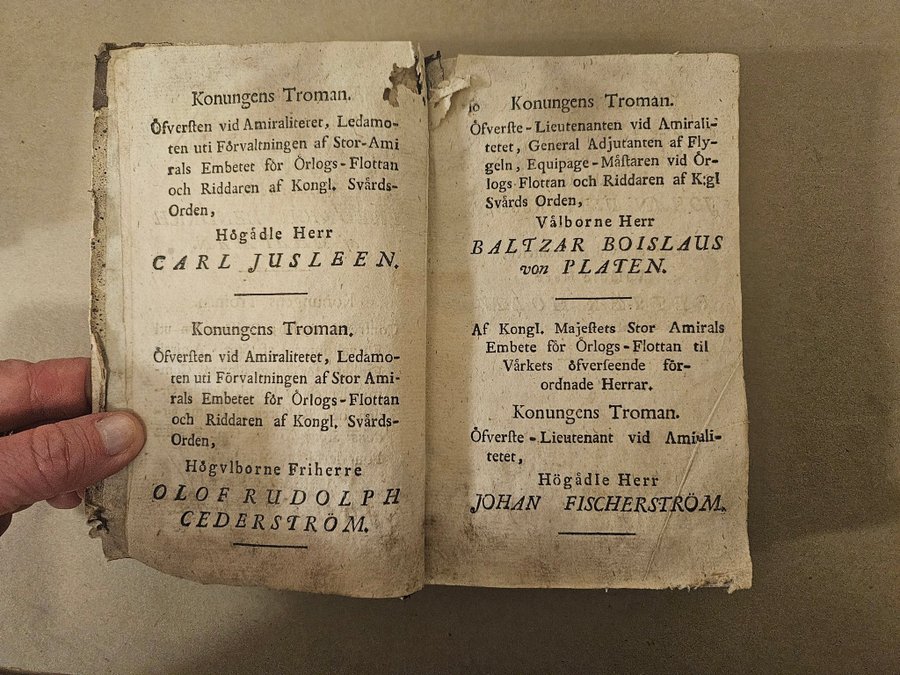 Konungens Troman.
Öfverſten vid Amiralitetet, Ledamo-
ten uti Förvaltningen af Stor-Ami
rals Embetet för Örlogs-Flottan
och Riddaren af Kongl. Svårds-
Orden,
Högådle Herr
CARL JUSLEEN.
Konungens Troman.
Öfverſten vid Amiralitetet, Ledamo-
ten uti Förvaltningen af Stor Ami-
rals Embetet för Örlogs-Flottan
och Riddaren af Kongl. Svårds-
Orden,
Högvlborne Friherre
OLOF RUDOLPH
CEDERSTRÖM.
Konungens Troman.
Öfverſte-Lieutenanten vid Amirali-
tetet, General Adjutanten af Fly-
geln, Equipage-Måſtaren vid Ör-
logs Flottan och Riddaren af K:gl
Svårds Orden,
Vålborne Herr
BALTZAR BOISLAUS
von PLATEN.
Af Kongl. Majeſtets Stor Amirals
Embete för Örlogs-Flottan til
Vårkets öfverſeende för-
ordnade Herrar.
Konungens Troman.
Öfverſte-Lieutenant vid Amirali-
tetet,
Högådle Herr
JOHAN FISCHERSTRÖM.